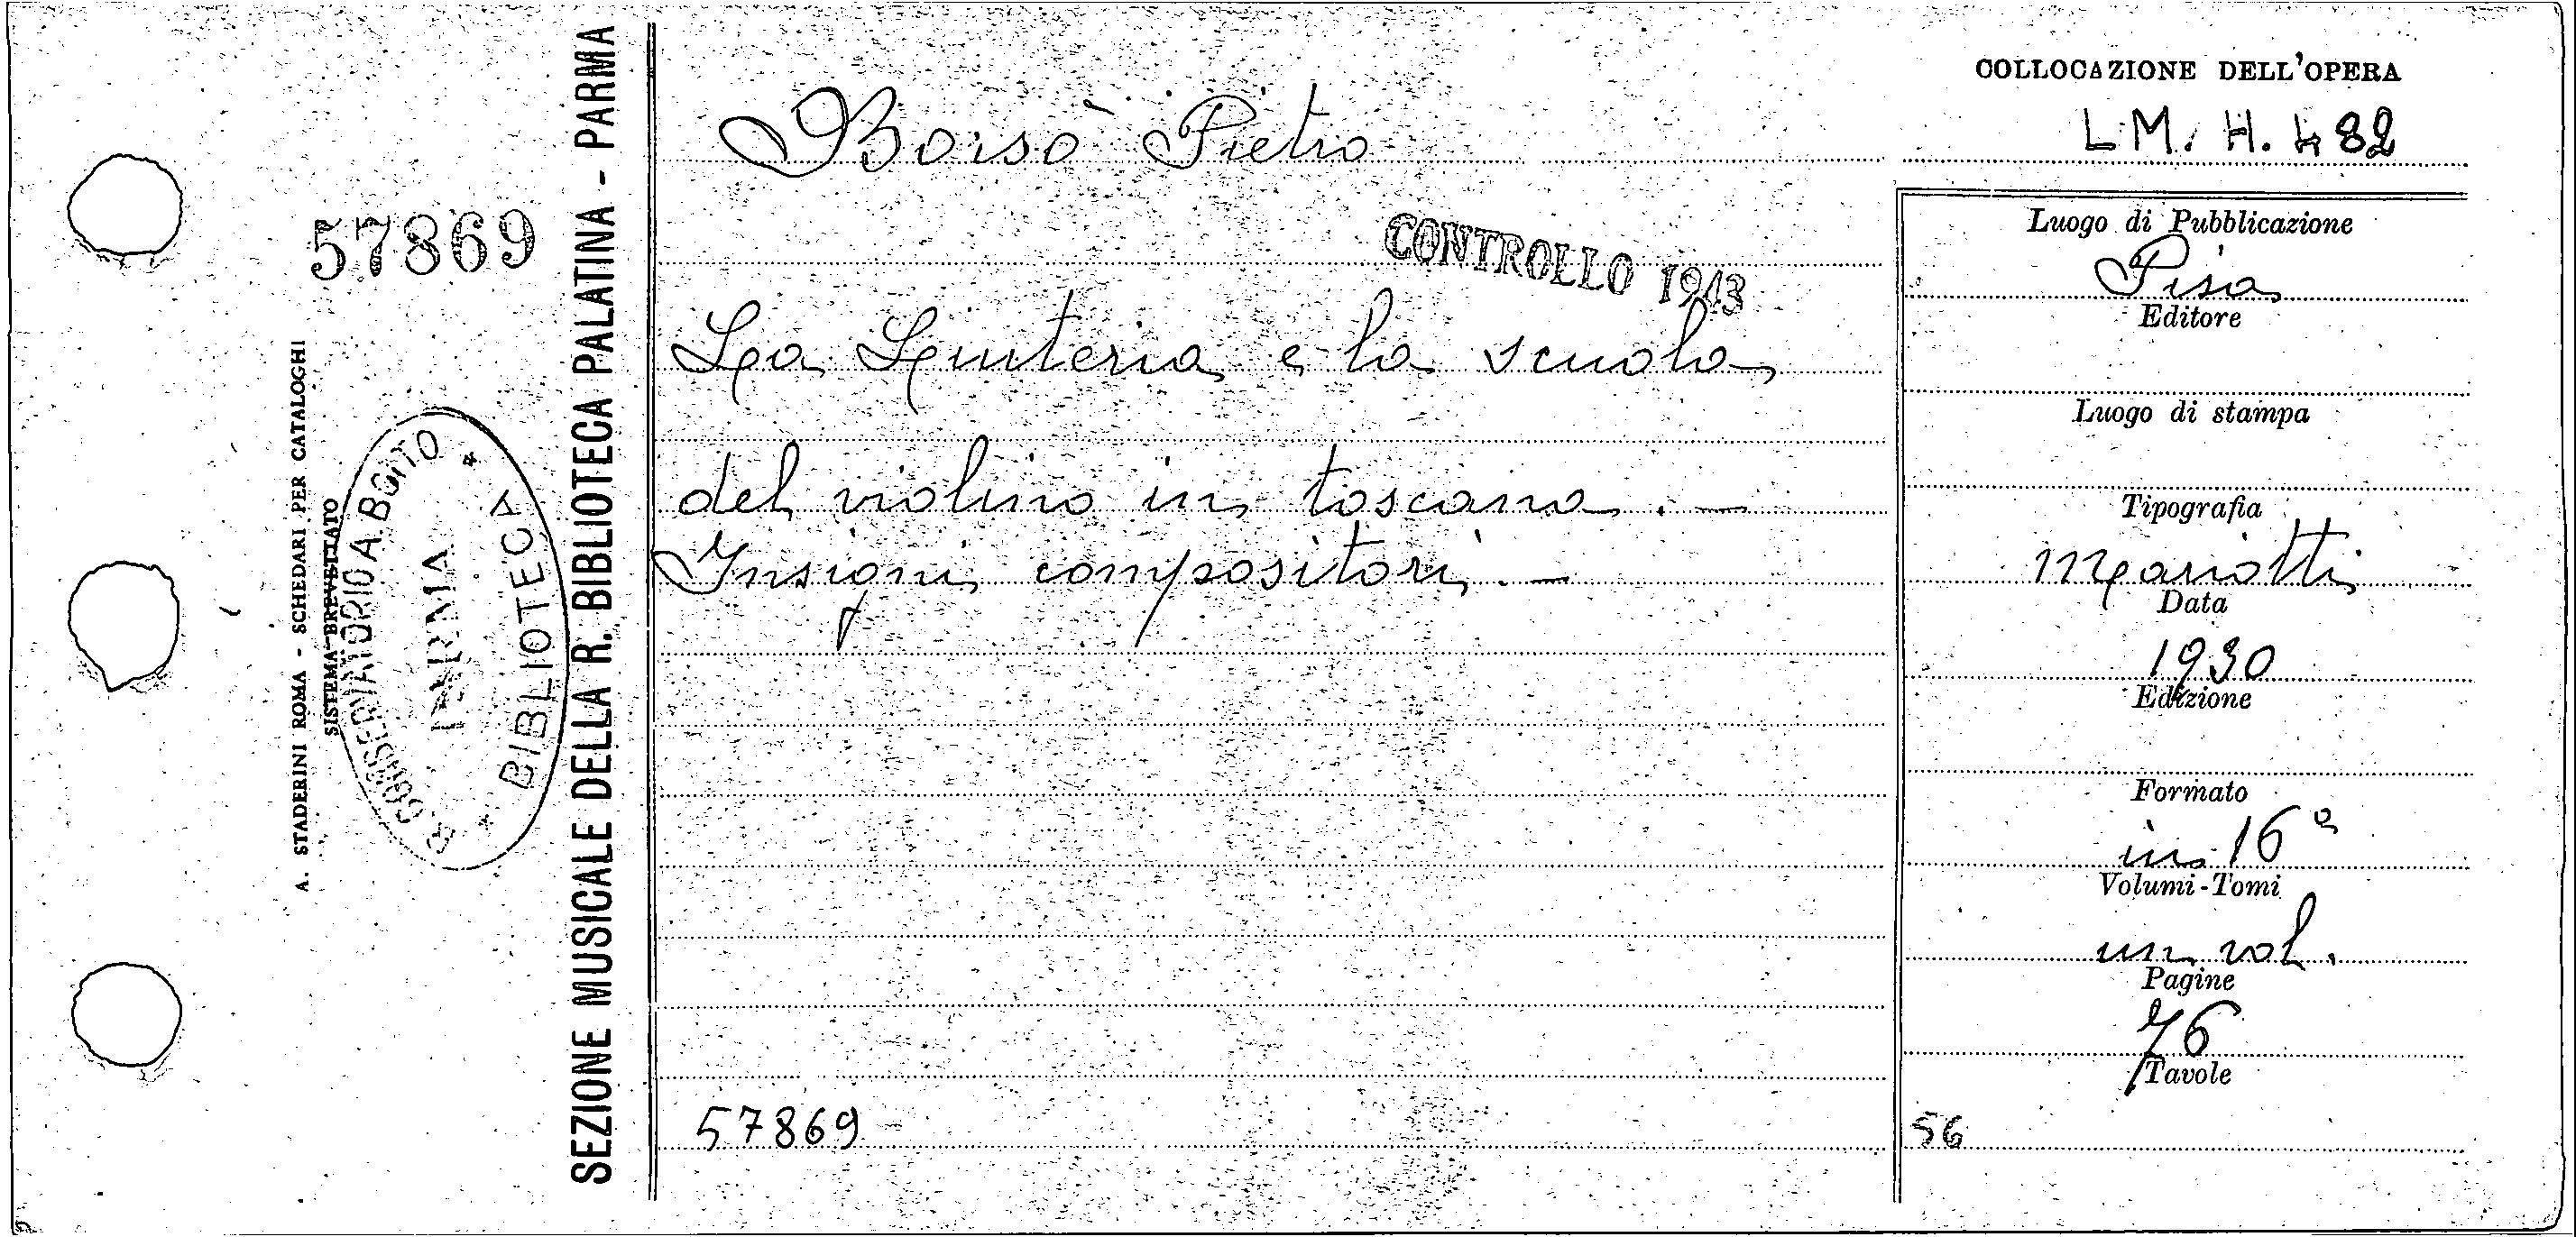 COLLOCAZIONE DELL'OPERA
L.M. H. 482
Borsò Pietro
57869
CONTROLLO 1943
La Liuteria e la scuola
del violino in toscana. —
Insigni compositori. —
57869
Luogo di Pubblicazione
Pisa
Editore
Luogo di stampa
Tipografia
Mariotti
Data
1930
Edizione
Formato
in 16º
Volumi-Tomi
un vol.
Pagine
76
Tavole
56
SEZIONE MUSICALE DELLA R. BIBLIOTECA PALATINA - PARMA
A. STADERINI ROMA - SCHEDARI PER CATALOGHI
SISTEMA BREVETTATO
R. CONSERVATORIO A. BOITO
PARMA
* BIBLIOTECA *